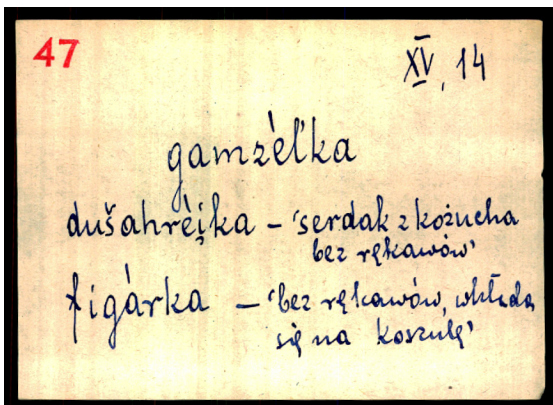 47
XV, 14
gamzél'ka
dušahréi̯ka – 'serdak z kożucha
bez rękawów'
figárka – 'bez rękawów, wkłada
się na koszulę'